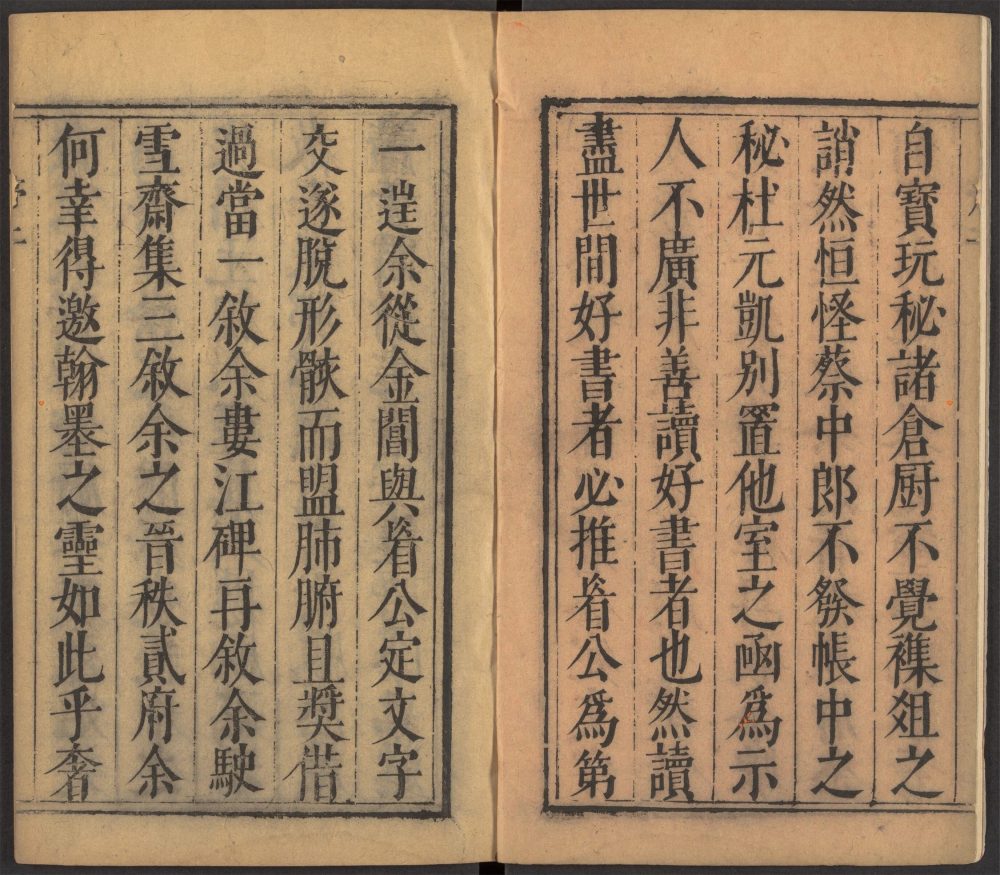 自寶玩秘諸倉厨不覺襍爼之
誚然恒怪蔡中郎不發帳中之
秘杜元凱别置他室之凾爲示
人不廣非善讀好書者也然讀
盡世間好書者必推㸙公爲第
一逞余從金閶與㸙公定文字
交遂脫形骸而盟肺腑且奬借
過當一敘余婁江碑再敘余駛
雪齋集三敘余之晉秩貳府余
何幸得邀翰墨之靈如此乎㸙